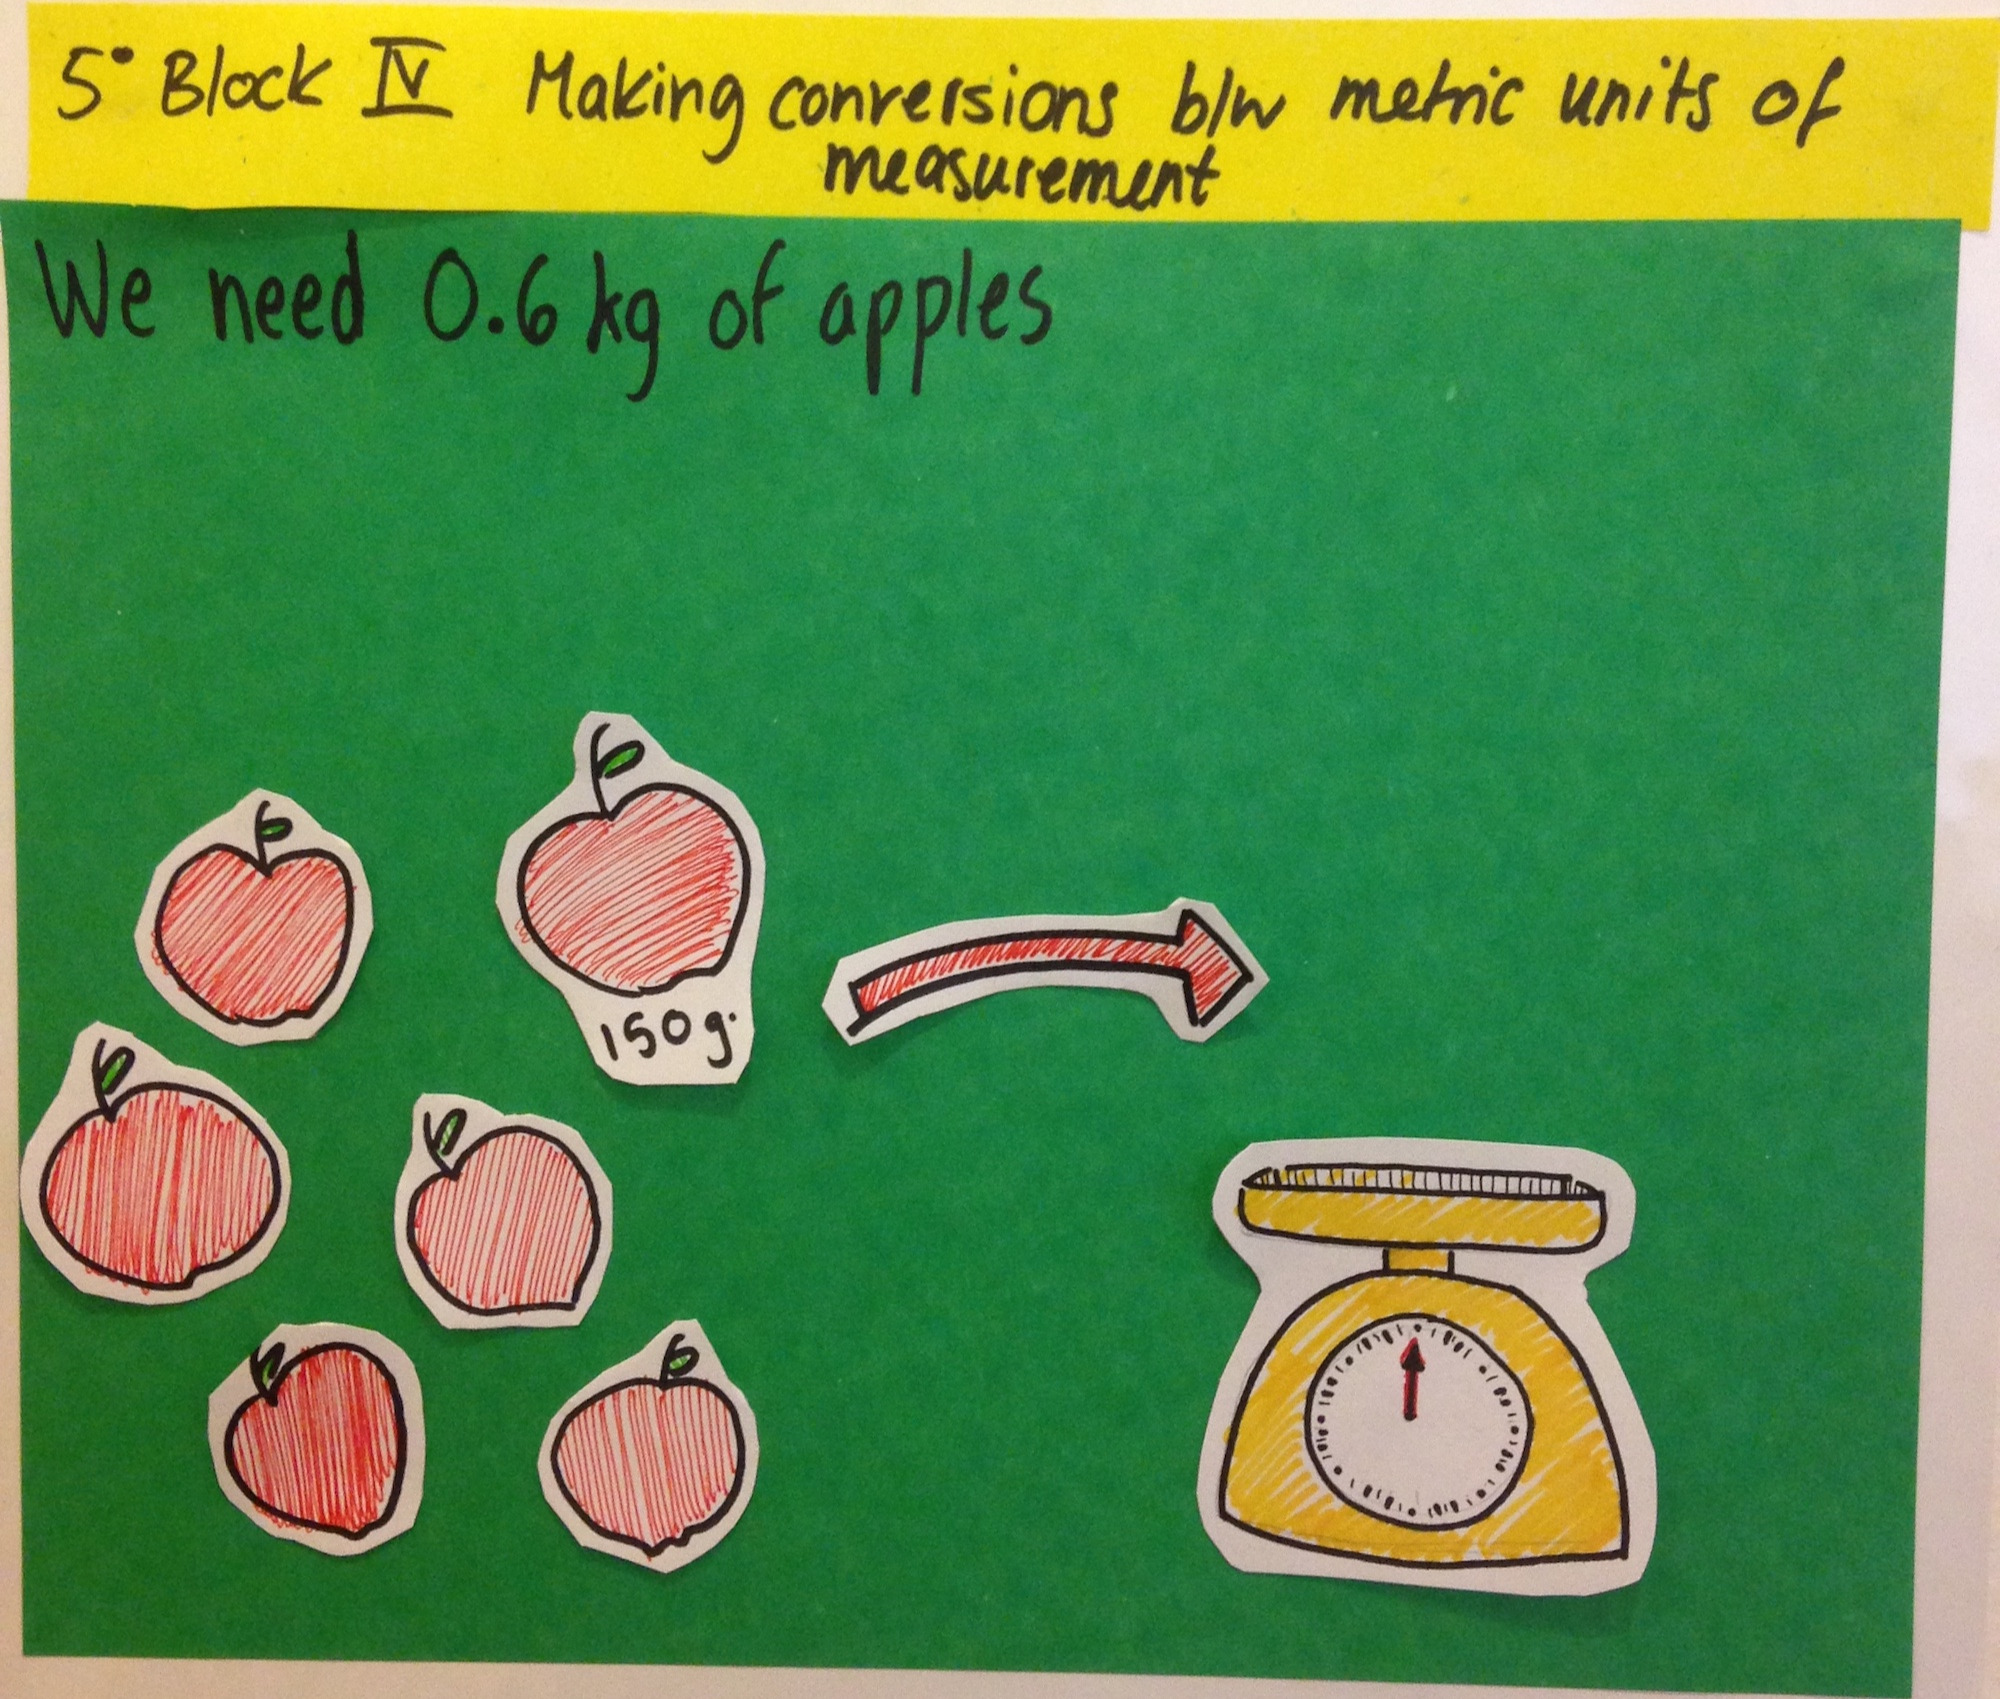 5° Block IV Making conversions b/w metric units of
measurement
We need 0.6 kg of apples
150g.